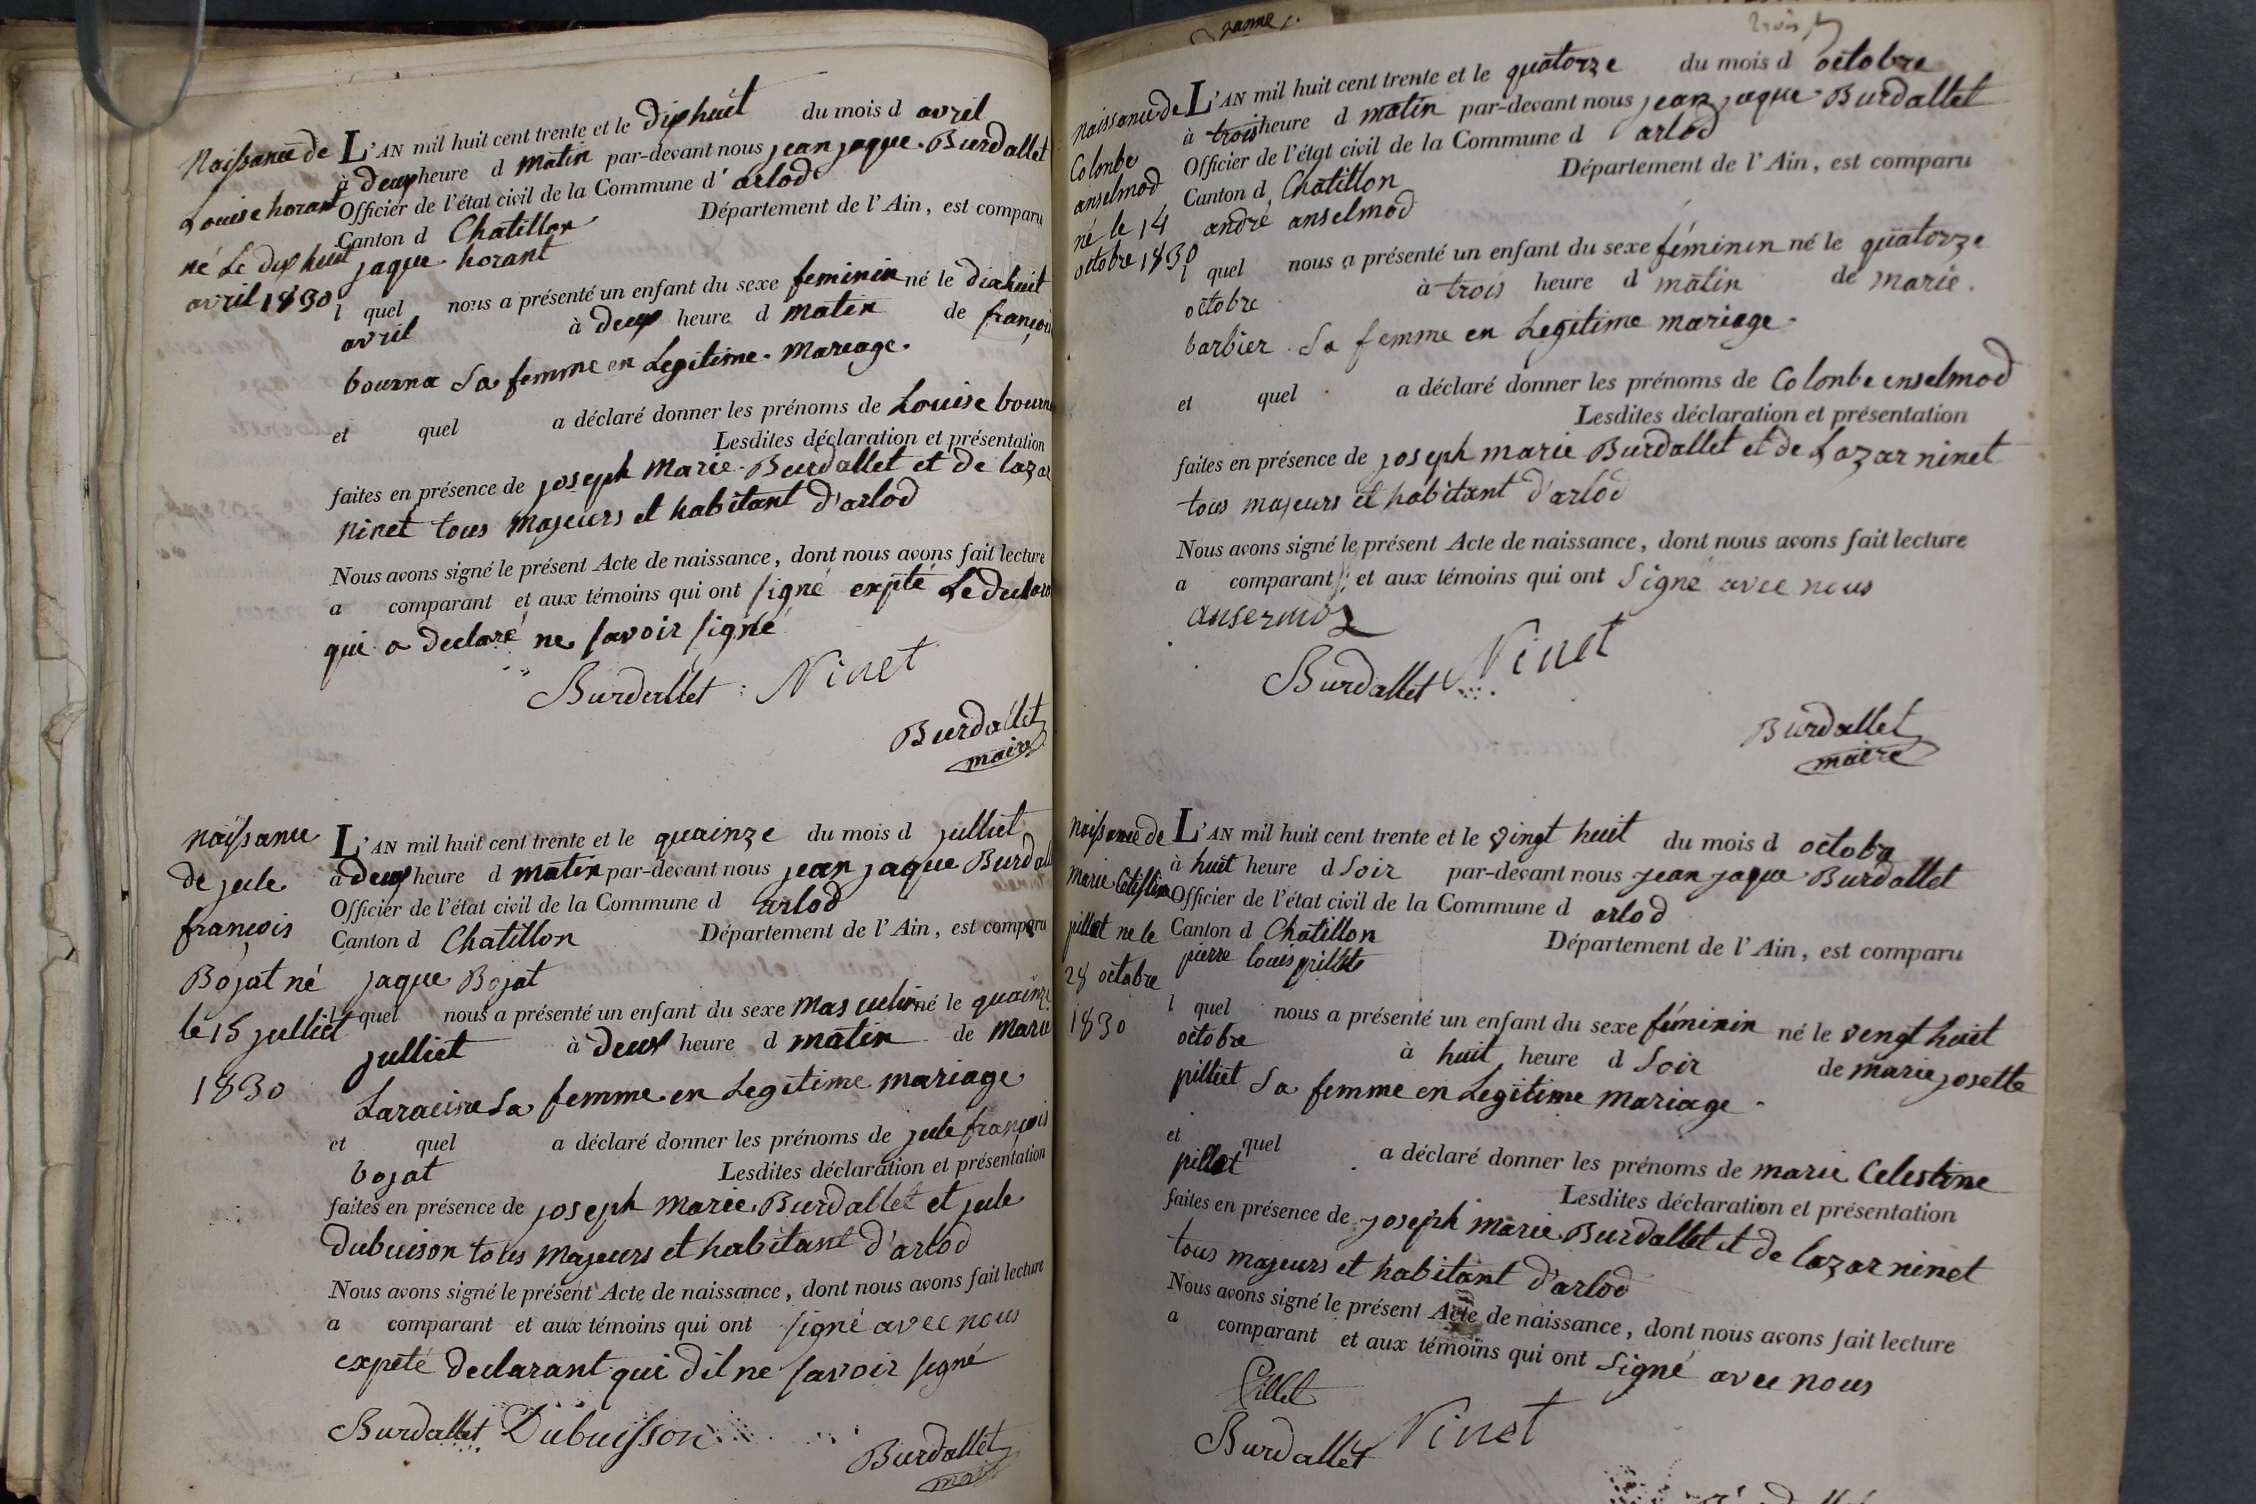 Naissance de
Louise horant
né Le dix huit
avril 1830
L'AN mil huit cent trente et le dix huit du mois d avril
à deux heure d matin par-devant nous jean jaque Burdallet
Officier de l'état civil de la Commune d' arlod
Canton d Chatillon Département de l'Ain, est comparu
jaque horant
l quel nous a présenté un enfant du sexe feminin né le dixhuit
avril à deux heure d matin de françoi
bourna Sa femme en Legitime mareage
et quel a déclaré donner les prénoms de Louise bourn
Lesdites déclaration et présentation
faites en présence de joseph Marie Burdallet et de lazar
ninet tous majeurs et habitant d'arlod
Nous avons signé le présent Acte de naissance, dont nous avons fait lecture
a comparant et aux témoins qui ont signé expté Le declara
qui a declaré ne savoir signé
Burdallet Ninet
Burdallet
maire
Naissance
de jule
françois
Bojat né
le 15 julliet
1830
L'AN mil huit cent trente et le quainze du mois d julliet
à deux heure d matin par-devant nous jean jaque Burdall
Officier de l'état civil de la Commune d arlod
Canton d Chatillon Département de l'Ain, est comparu
jaque Bojat
l quel nous a présenté un enfant du sexe masculin né le quainze
julliet à deux heure d matin de Marie
Laracine Sa femme en Legitime mariage
et quel a déclaré donner les prénoms de jule françois
bojat Lesdites déclaration et présentation
faites en présence de joseph Marie Burdallet et jule
Dubuison tous majeurs et habitant d'arlod
Nous avons signé le présent Acte de naissance, dont nous avons fait lecture
a comparant et aux témoins qui ont signé avec nous
expeté declarant qui dil ne savoir signé
Burdallet Dubuisson
Burdallet
maire
Naissance de
Colonbe
anselmod
né le 14
octobre 1830
L'AN mil huit cent trente et le quatorze du mois d octobre
à trois heure d matin par-devant nous jean jaque Burdallet
Officier de l'état civil de la Commune d arlod
Canton d Chatillon Département de l'Ain, est comparu
andré anselmod
l quel nous a présenté un enfant du sexe féminin né le quatorze
octobre à trois heure d matin de marie
barbier Sa femme en Legitime mariage
et quel a déclaré donner les prénoms de Colonbe enselmod
Lesdites déclaration et présentation
faites en présence de joseph marie Burdallet et de Lazar ninet
tous majeurs et habitant d'arlod
Nous avons signé le présent Acte de naissance, dont nous avons fait lecture
a comparant et aux témoins qui ont signé avec nous
ansermoz
Burdallet Ninet
Burdallet
maire
Naissance de
marie Celestine
pillet ne le
28 octobre
1830
L'AN mil huit cent trente et le vingt huit du mois d octobre
à huit heure d soir par-devant nous jean jaque Burdallet
Officier de l'état civil de la Commune d arlod
Canton d Chatillon Département de l'Ain, est comparu
pierre louis
l quel nous a présenté un enfant du sexe féminin né le vengt huit
octobre à huit heure d soir de marie josette
pilliet Sa femme en Legitime mariage
et quel a déclaré donner les prénoms de marie Celestine
pillet Lesdites déclaration et présentation
faites en présence de joseph marie Burdallet et de lazar ninet
tous majeurs et habitant d'arlod
Nous avons signé le présent Acte de naissance, dont nous avons fait lecture
a comparant et aux témoins qui ont signé avec nous
Pillet
Burdallet Ninet